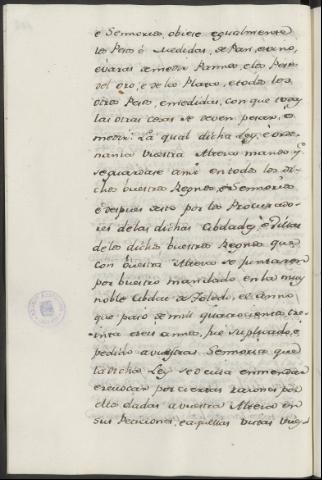 é Señorios, obiese egualmente
los Pesos é Medidas, de Pan, é vino,
é varas de medir Pannos, é los Pesos
del oro, é de la Plata, é todos los
otros Pesos, é medidas, con que todas
las otras cosas se deven pesar, é
medir: La qual dicha Ley, é orde-
nanza vuestra Alteza mandó q.e
se guardase ansi en todos los di-
chos vuestros Regnos, é Señorios
é despues desto por los Procurado-
res de las dichas Cibdades, é Villas
de los dichos vuestros Regnos que
con vuestra Alteza se juntaron
por vuestro mandado en la muy
noble Cibdad de Toledo, el anno
que pasó de mil quatrocientos tre-
inta é seis annos, fué suplicado, é
pedido a vuestra Señoria que
la dicha Ley se devia enmendar
é revocar por ciertas razones por
ellos dadas a vuestra Alteza en
sus Peticiones, é aquellas vistas